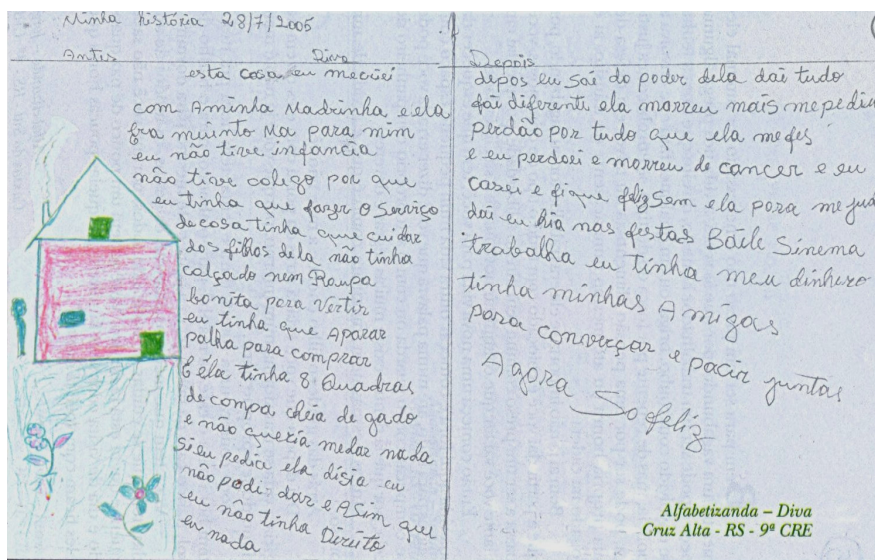 Minha história 28/7/2005
Antes Diva
esta casa eu meciei
com Aminha Madrinha e ela
Era muinto Ma para mim
eu não tive infancia
não tive colego por que
eu tinha que fazer O Serviço
de casa tinha que cuidar
dos filhos dela não tinha
calçado nem Roupa
bonita para Vertir
eu tinha que Aparar
palha para comprar
E éla tinha 8 Quadras
de compa cheia de gado
e não queria medar nada
si eu pedia ela disia eu
não podi dar e ASim que
eu não tinha Direito
en nada
Depois
depos eu Sai do poder dela dai tudo
foi diferente ela morreu mais me pediu
perdão por tudo que ela mefes
e eu perdoei e morreu de cancer e eu
casei e fique feliz Sem ela para me
dai eu hia nas festas Baile Sinema
trabalha eu tinha meu dinhero
tinha minhas Amigas
para converçar e pacir juntas
Agora So feliz
Alfabetizanda – Diva
Cruz Alta - RS - 9ª CRE